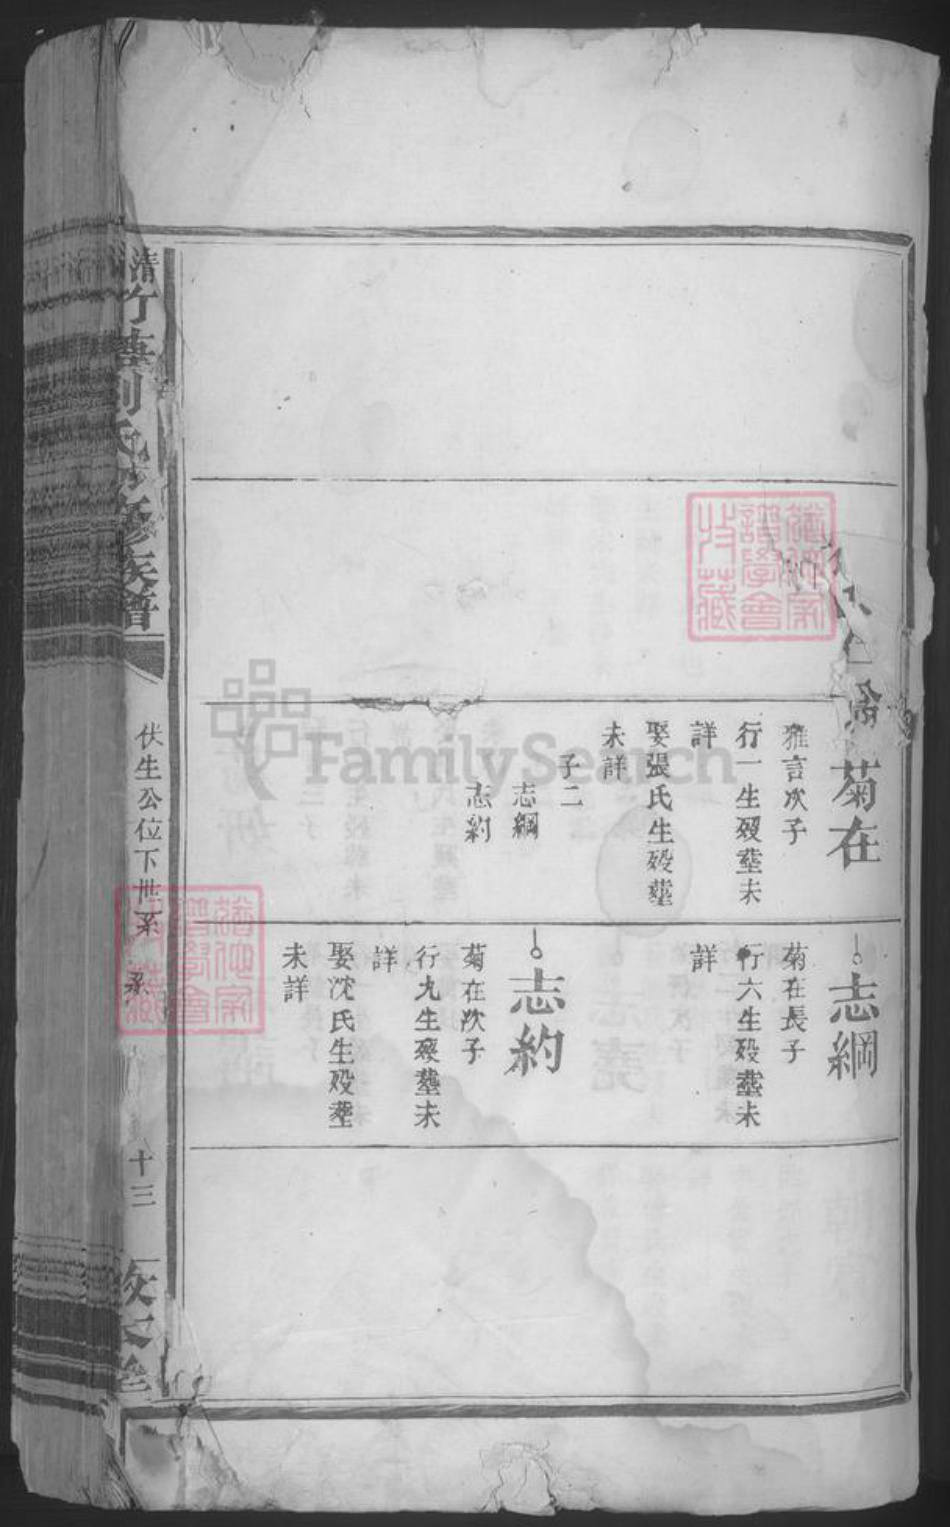 菊在
雅言次子
行一生歿塟未
詳
娶張氏生歿塟
未詳
子二
志綱
志約
志綱
菊在長子
行六生歿塟未
詳
志約
菊在次子
行九生歿塟未
詳
娶沈氏生歿塟
未詳
伏生公位下世系
十三
FamilySearch